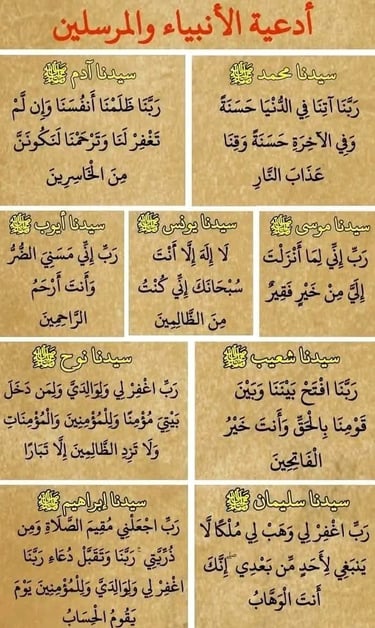 أدعية الأنبياء والمرسلين
سيدنا محمد ﷺ
رَبَّنَا آتِنَا فِي الدُّنْيَا حَسَنَةً
وَفِي الآخِرَةِ حَسَنَةً وَقِنَا
عَذَابَ النَّارِ
سيدنا آدم ﷺ
رَبَّنَا ظَلَمْنَا أَنفُسَنَا وَإِن لَّمْ
تَغْفِرْ لَنَا وَتَرْحَمْنَا لَنَكُونَنَّ
مِنَ الْخَاسِرِينَ
سيدنا موسى ﷺ
رَبِّ إِنِّي لِمَا أَنْزَلْتَ
إِلَيَّ مِنْ خَيْرٍ فَقِيرٌ
سيدنا يونس ﷺ
لَا إِلَهَ إِلَّا أَنْتَ
سُبْحَانَكَ إِنِّي كُنْتُ
مِنَ الظَّالِمِينَ
سيدنا أيوب ﷺ
رَبِّ إِنِّي مَسَّنِيَ الضُّرُّ
وَأَنتَ أَرْحَمُ
الرَّاحِمِينَ
سيدنا شعيب ﷺ
رَبَّنَا افْتَحْ بَيْنَنَا وَبَيْنَ
قَوْمِنَا بِالْحَقِّ وَأَنتَ خَيْرُ
الْفَاتِحِينَ
سيدنا نوح ﷺ
رَبِّ اغْفِرْ لِي وَلِوَالِدَيَّ وَلِمَن دَخَلَ
بَيْتِيَ مُؤْمِنًا وَلِلْمُؤْمِنِينَ وَالْمُؤْمِنَاتِ
وَلَا تَزِدِ الظَّالِمِينَ إِلَّا تَبَارًا
سيدنا سليمان ﷺ
رَبِّ اغْفِرْ لِي وَهَبْ لِي مُلْكًا لَّا
يَنبَغِي لِأَحَدٍ مِّن بَعْدِي ۖ إِنَّكَ
أَنتَ الْوَهَّابُ
سيدنا إبراهيم ﷺ
رَبِّ اجْعَلْنِي مُقِيمَ الصَّلَاةِ وَمِن
ذُرِّيَّتِي ۚ رَبَّنَا وَتَقَبَّلْ دُعَاءِ رَبَّنَا
اغْفِرْ لِي وَلِوَالِدَيَّ وَلِلْمُؤْمِنِينَ يَوْمَ
يَقُومُ الْحِسَابُ